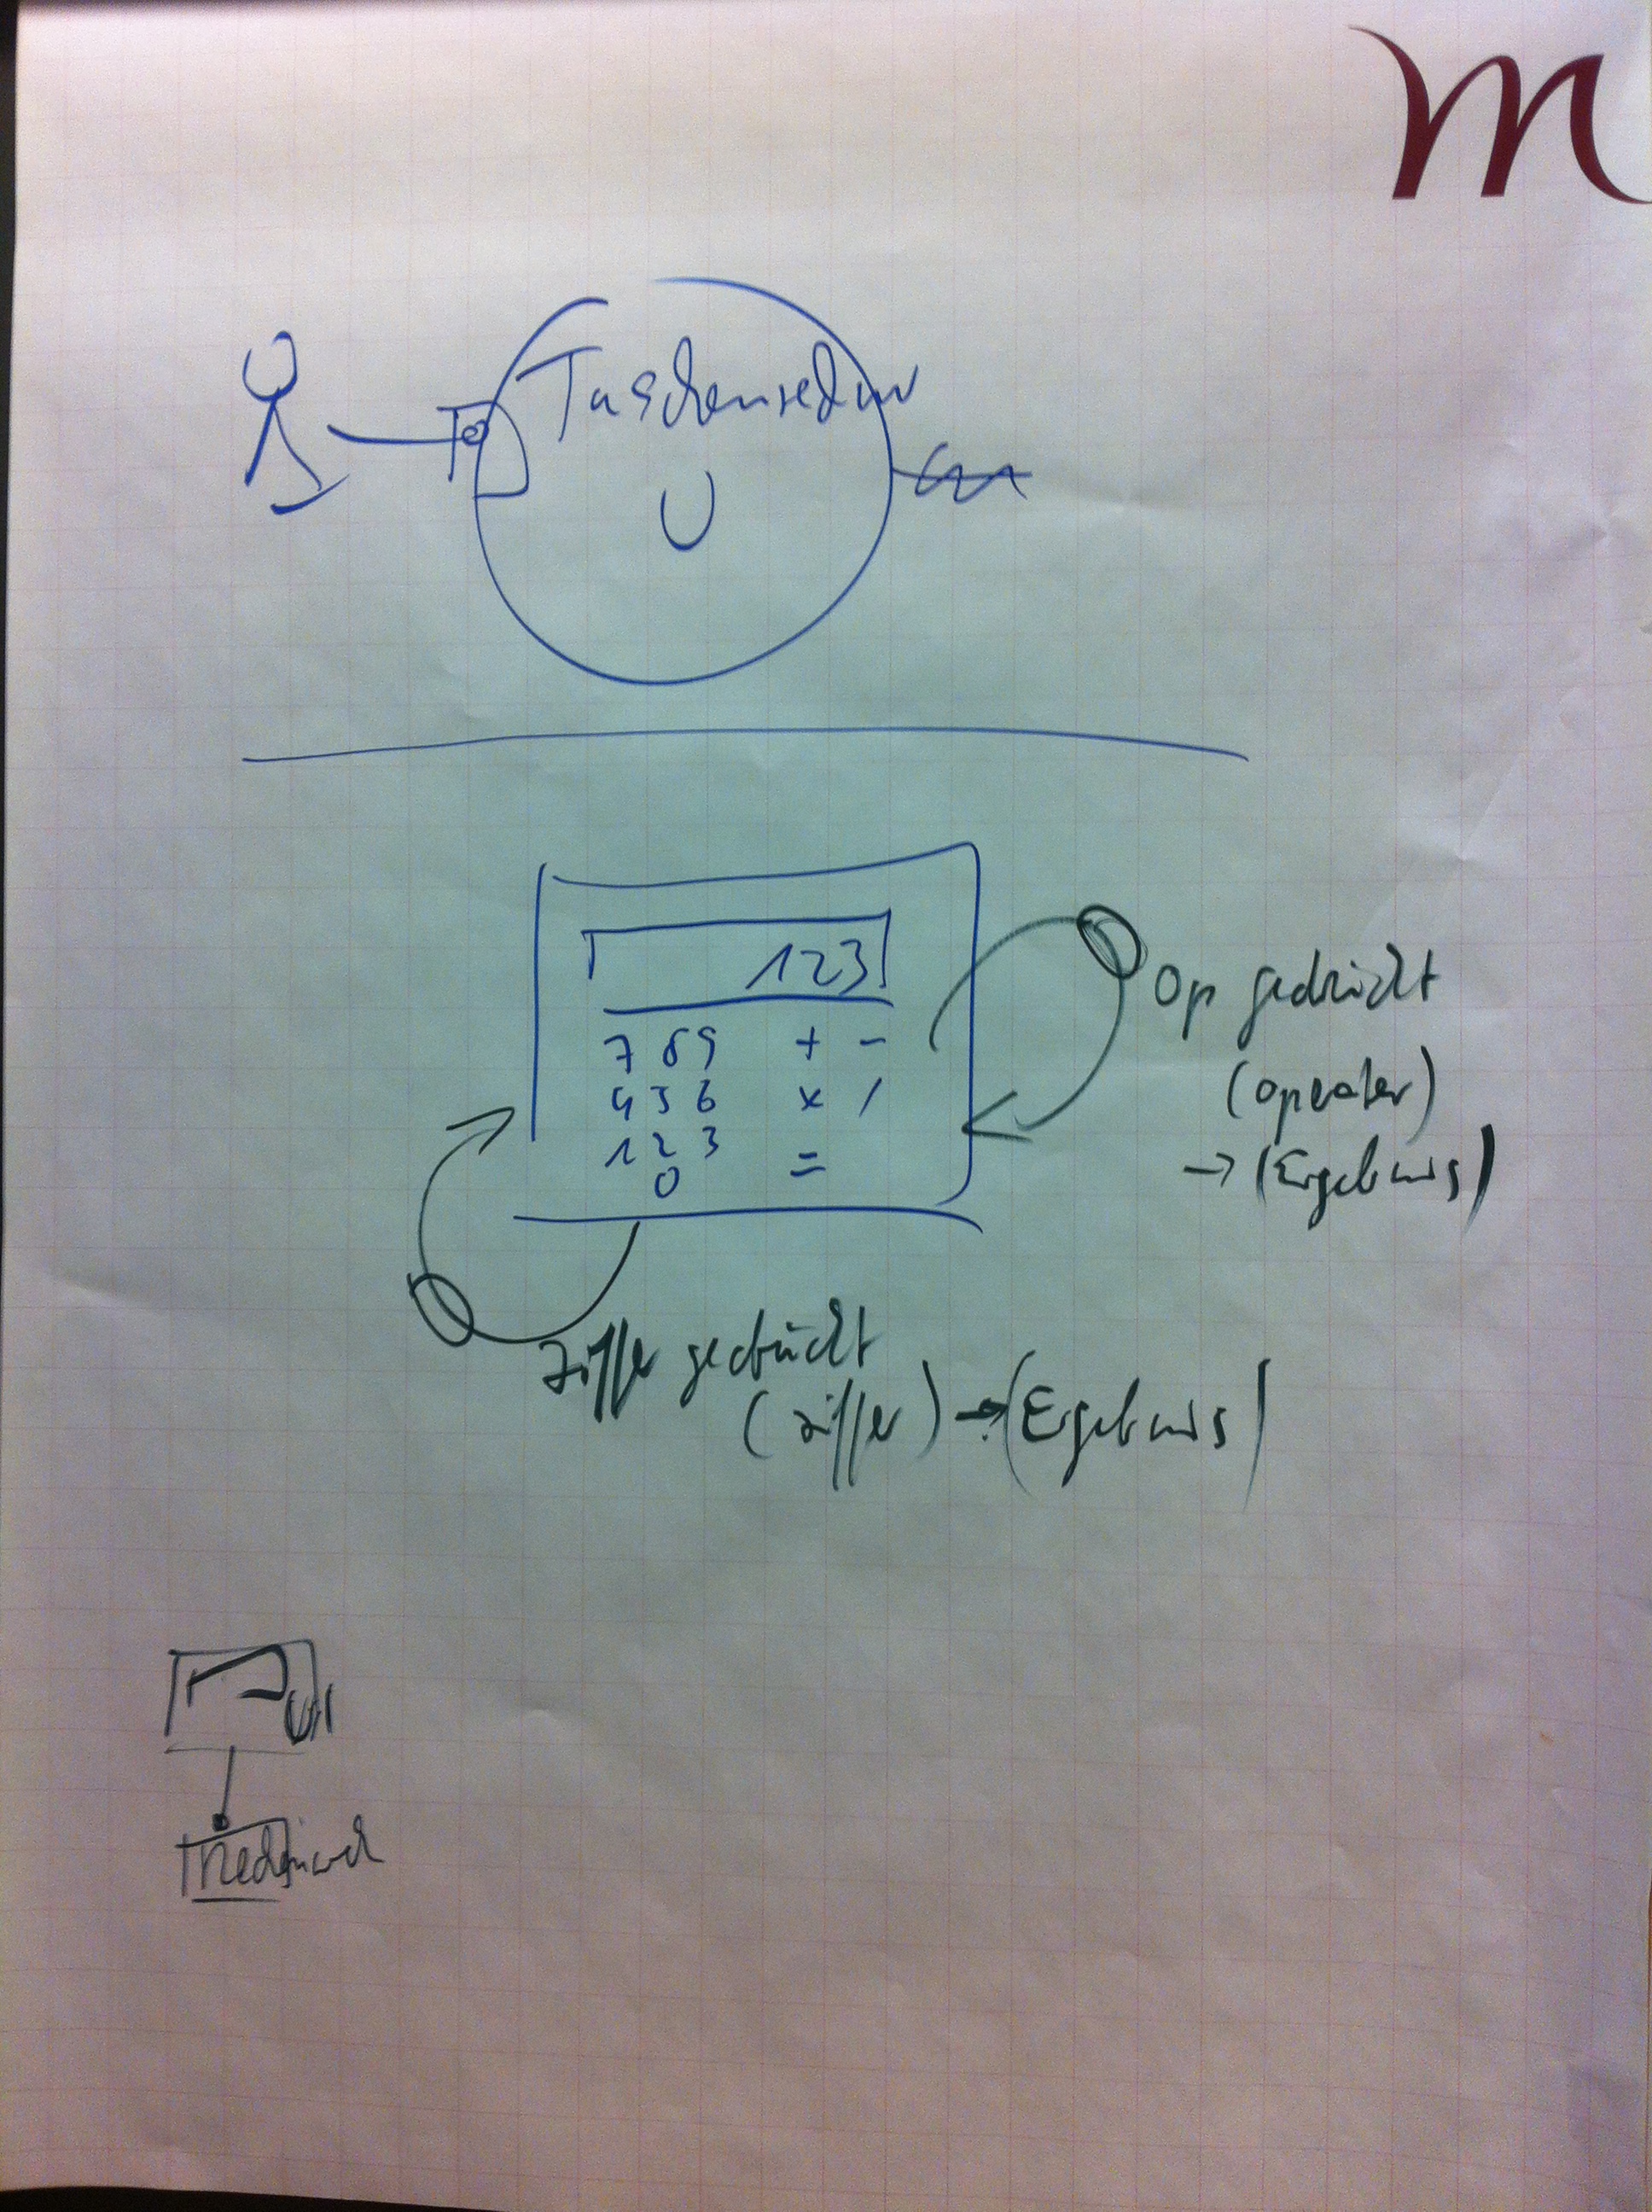 m
Taschenrechner
U
123
7 8 9 + -
4 5 6 x /
1 2 3
0 =
Op gedrückt
(Operator)
→ (Ergebnis)
Ziffer gedrückt
(Ziffer) → (Ergebnis)